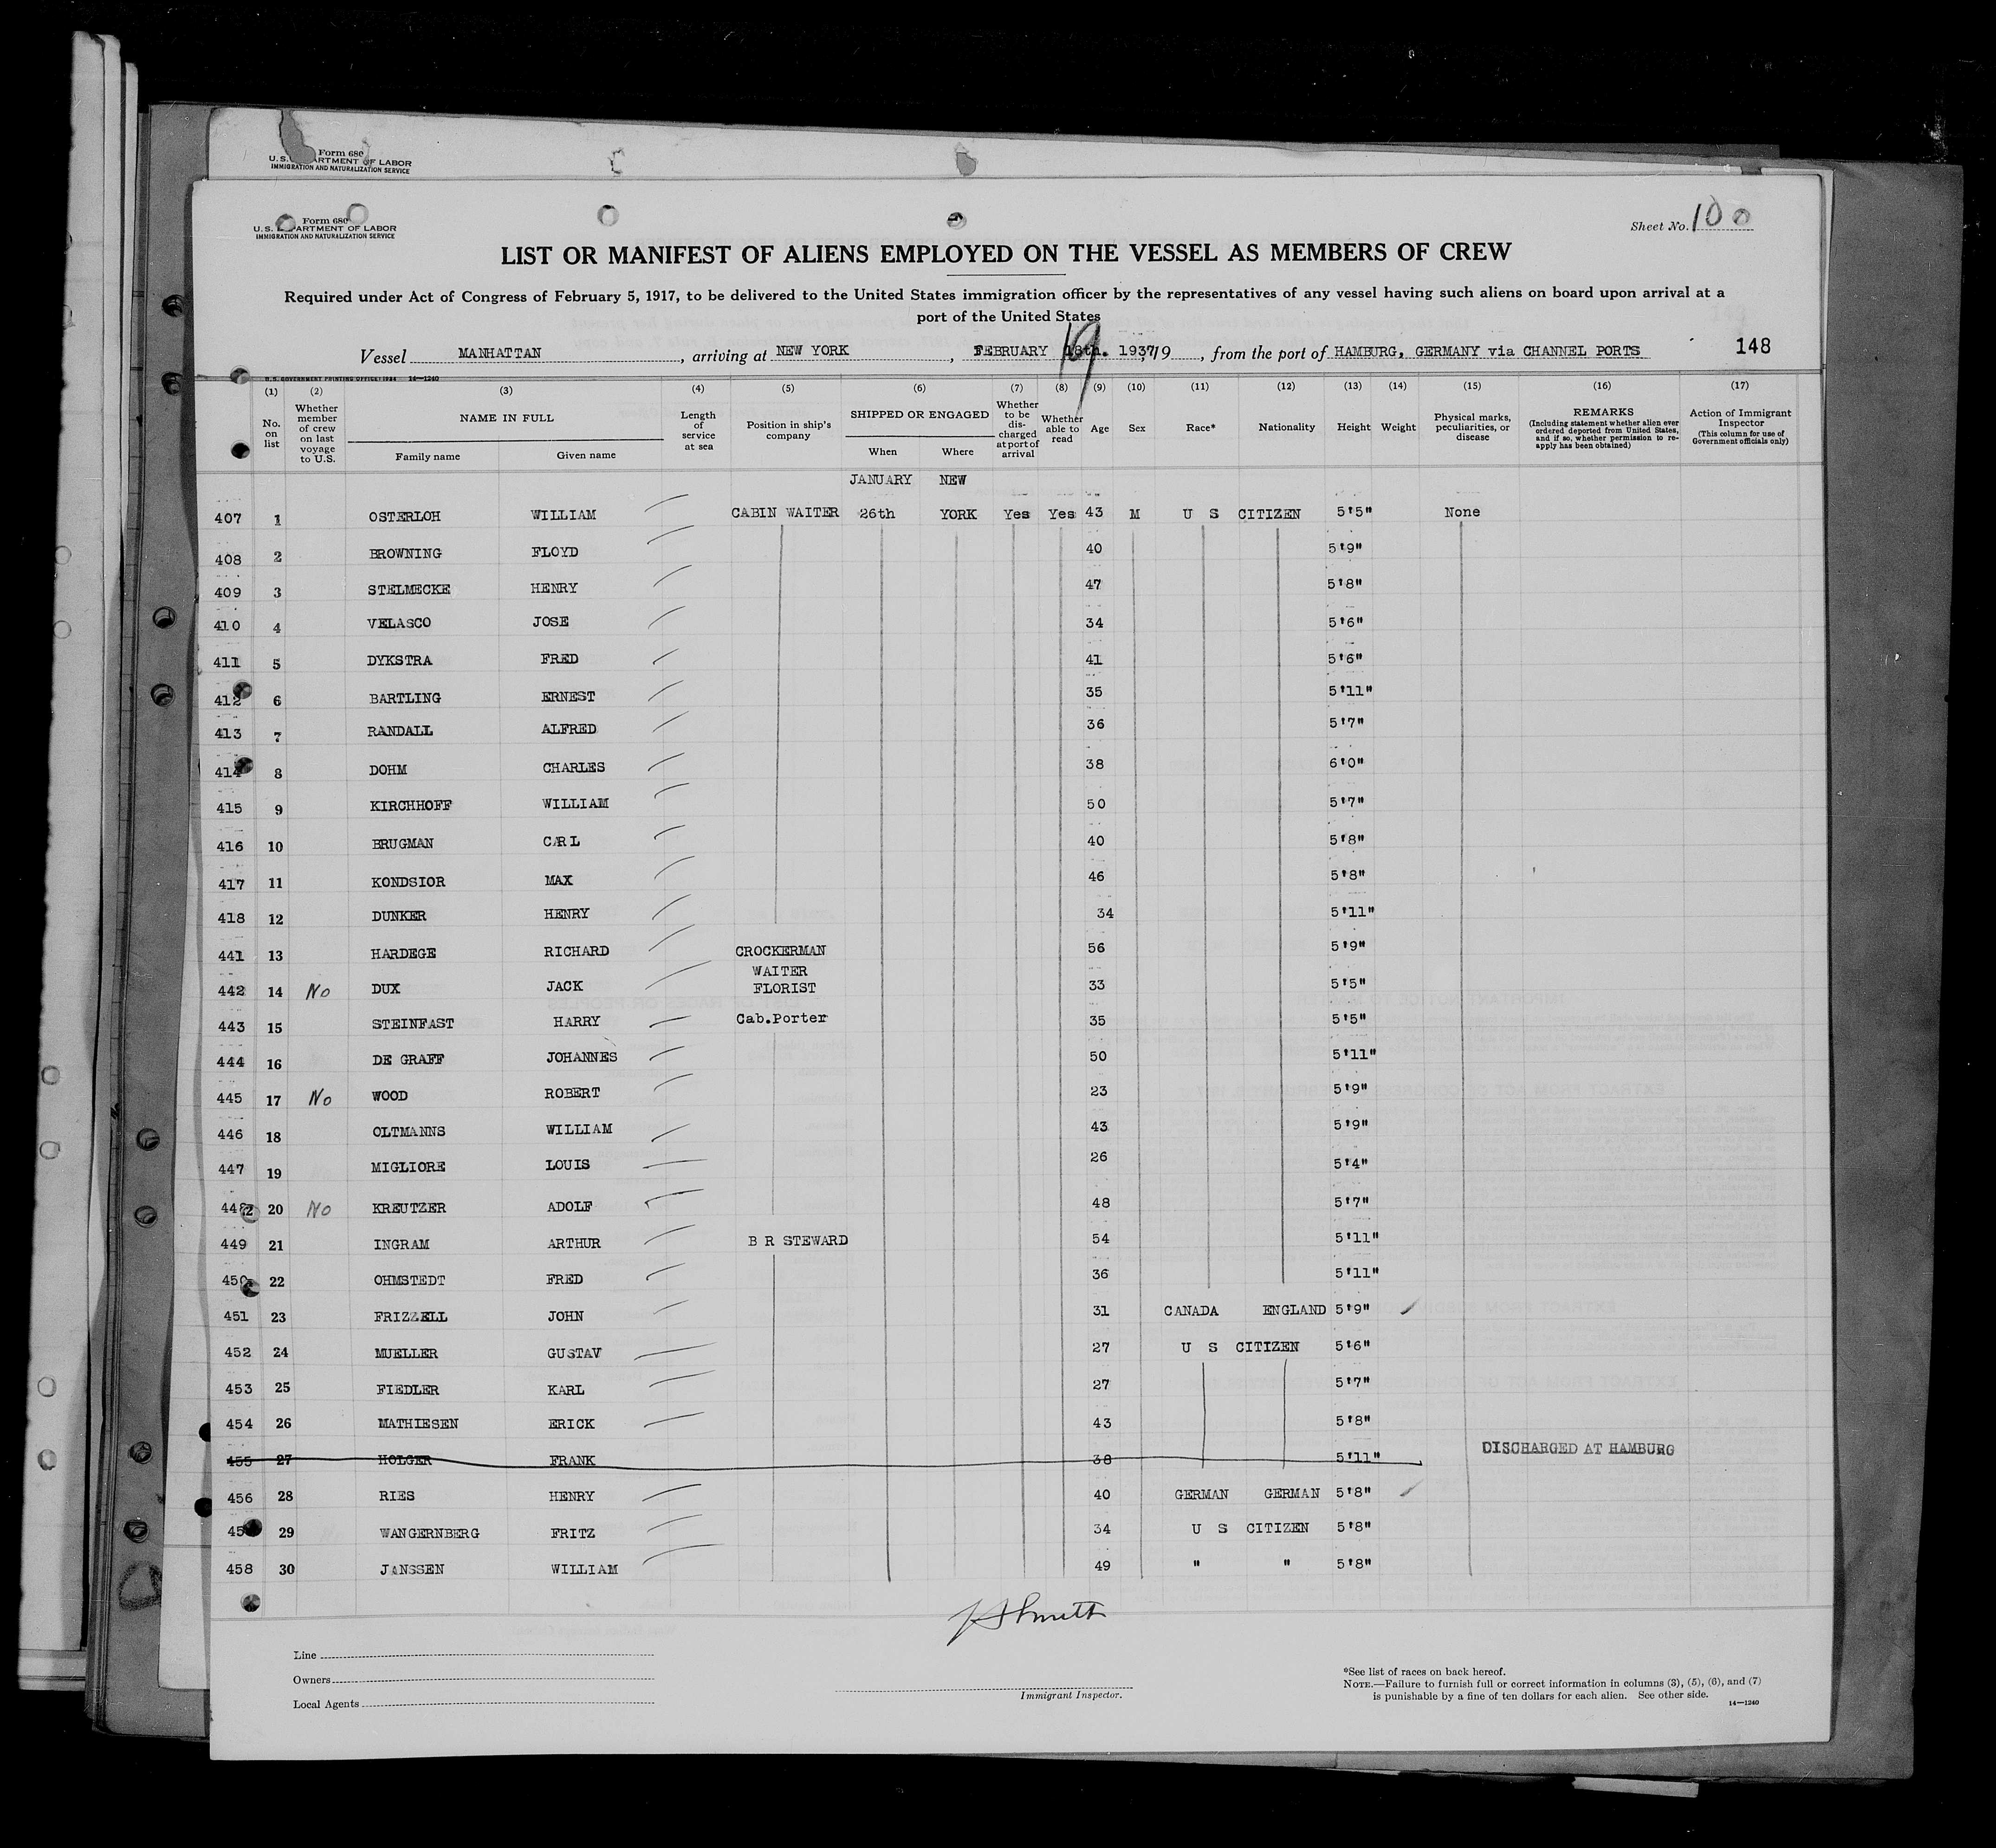 Form 680
U. S. DEPARTMENT OF LABOR
IMMIGRATION AND NATURALIZATION SERVICE
Form 680
U. S. DEPARTMENT OF LABOR
IMMIGRATION AND NATURALIZATION SERVICE
Sheet No. 10
LIST OR MANIFEST OF ALIENS EMPLOYED ON THE VESSEL AS MEMBERS OF CREW
Required under Act of Congress of February 5, 1917, to be delivered to the United States immigration officer by the representatives of any vessel having such aliens on board upon arrival at a
port of the United States
Vessel MANHATTAN, arriving at NEW YORK, FEBRUARY 18th. 19 1937, 19, from the port of HAMBURG, GERMANY via CHANNEL PORTS 148
U. S. GOVERNMENT PRINTING OFFICE: 1934 14—1240
(1) (2) (3) (4) (5) (6) (7) (8) (9) (10) (11) (12) (13) (14) (15) (16) (17)
No. on list
Whether member of crew on last voyage to U.S.
NAME IN FULL
Family name Given name
Length of service at sea
Position in ship's company
SHIPPED OR ENGAGED
When Where
Whether to be discharged at port of arrival
Whether able to read
Age
Sex
Race*
Nationality
Height
Weight
Physical marks, peculiarities, or disease
REMARKS
(Including statement whether alien ever ordered deported from United States, and if so, whether permission to reapply has been obtained)
Action of Immigrant Inspector
(This column for use of Government officials only)
JANUARY NEW
407 1 OSTERLOH WILLIAM CABIN WAITER 26th YORK Yes Yes 43 M U S CITIZEN 5'5" None
408 2 BROWNING FLOYD 40 5'9"
409 3 STELMECKE HENRY 47 5'8"
410 4 VELASCO JOSE 34 5'6"
411 5 DYKSTRA FRED 41 5'6"
412 6 BARTLING ERNEST 35 5'11"
413 7 RANDALL ALFRED 36 5'7"
414 8 DOHM CHARLES 38 6'0"
415 9 KIRCHHOFF WILLIAM 50 5'7"
416 10 BRUGMAN CARL 40 5'8"
417 11 KONDSIOR MAX 46 5'8"
418 12 DUNKER HENRY 34 5'11"
441 13 HARDEGE RICHARD CROCKERMAN 56 5'9"
WAITER
442 14 No DUX JACK FLORIST 33 5'5"
443 15 STEINFAST HARRY Cab.Porter 35 5'5"
444 16 DE GRAFF JOHANNES 50 5'11"
445 17 No WOOD ROBERT 23 5'9"
446 18 OLTMANNS WILLIAM 43 5'9"
447 19 MIGLIORE LOUIS 26 5'4"
448 20 No KREUTZER ADOLF 48 5'7"
449 21 INGRAM ARTHUR B R STEWARD 54 5'11"
450 22 OHMSTEDT FRED 36 5'11"
451 23 FRIZZELL JOHN 31 CANADA ENGLAND 5'9"
452 24 MUELLER GUSTAV 27 U S CITIZEN 5'6"
453 25 FIEDLER KARL 27 5'7"
454 26 MATHIESEN ERICK 43 5'8"
455 27 HOLGER FRANK 38 5'11" DISCHARGED AT HAMBURG
456 28 RIES HENRY 40 GERMAN GERMAN 5'8"
45 29 WANGERNBERG FRITZ 34 U S CITIZEN 5'8"
458 30 JANSSEN WILLIAM 49 " " 5'8"
Line
Owners
Local Agents
Immigrant Inspector.
*See list of races on back hereof.
NOTE.—Failure to furnish full or correct information in columns (3), (5), (6), and (7)
is punishable by a fine of ten dollars for each alien. See other side. 14—1240